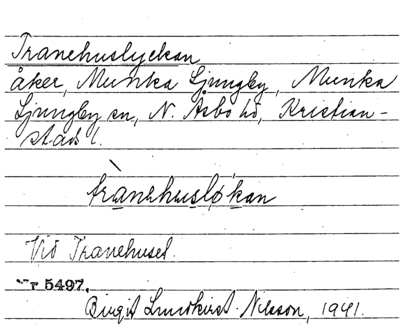 Tranehuslyckan
åker, Munka Ljungby, Munka
Ljungby sn, N. Åsbo hd, Kristian-
stads l.
trànehusløkan
Vid Tranehuset.
Nr 5497.
Birgit Lundkvist-Nilsson, 1941.